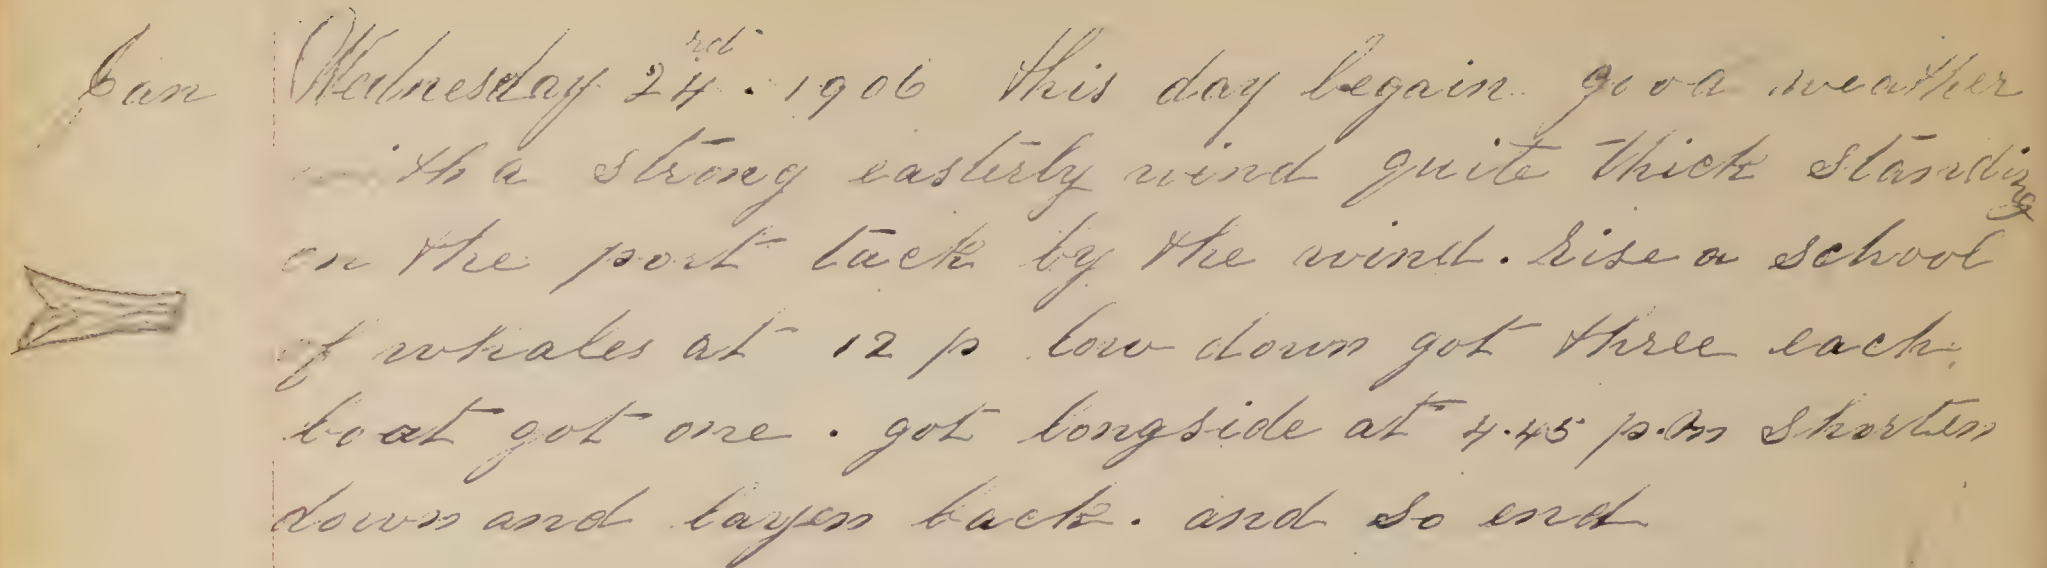 Jan Wednesday 24rd. 1906 this day begain good weather
with a strong easterly wind quite thick standing
on the port tack by the wind. rise a school
of whales at 12 p low down got three each
boat got one. got longside at 4.45 p.m shorten
down and layen back. and so end